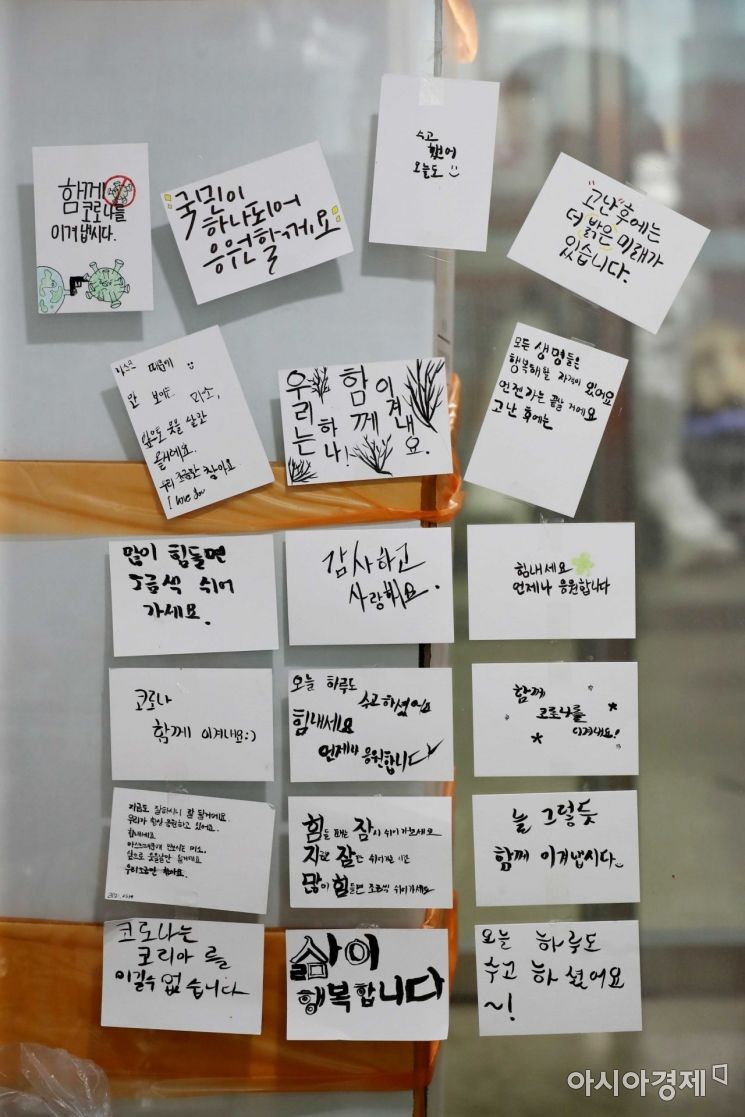 함께
코로나를
이겨냅시다.
국민이
하나되어
응원할게요
수고
했어
오늘도
"고난"후에는
더 밝은 미래가
있습니다.
마스크 때문에
안 보이는 미소,
앞으로 웃을 날만
올거에요.
우리 조금만 참아요
I love you
우리는
하나!
함께
이겨내요.
모든 생명들은
행복해질 자격이 있어요
언젠가는 끝날 거에요
고난 후에는
많이 힘들면
조금씩 쉬어
가세요.
감사하고
사랑해요.
힘내세요
언제나 응원합니다
코로나
함께 이겨내요:)
오늘 하루도
수고하셨어요
힘내세요
언제나 응원합니다
함께
코로나를
이겨내요!
지금도 잘하시니 잘 될거에요.
우리가 항상 응원하고 있어요.
힘내세요
마스크때문에 안보이는 미소,
앞으로 웃을날만 올거에요.
우리조금만 참아요.
힘들 때는 잠시 쉬어가보세요
많이 힘들면 조금씩 쉬어가세요
늘 그렇듯
함께 이겨냅시다
코로나는
코리아 를
이길수 없 습니다
삶이
행복합니다
오늘 하루도
수고 하 셨어요
~!
아시아경제